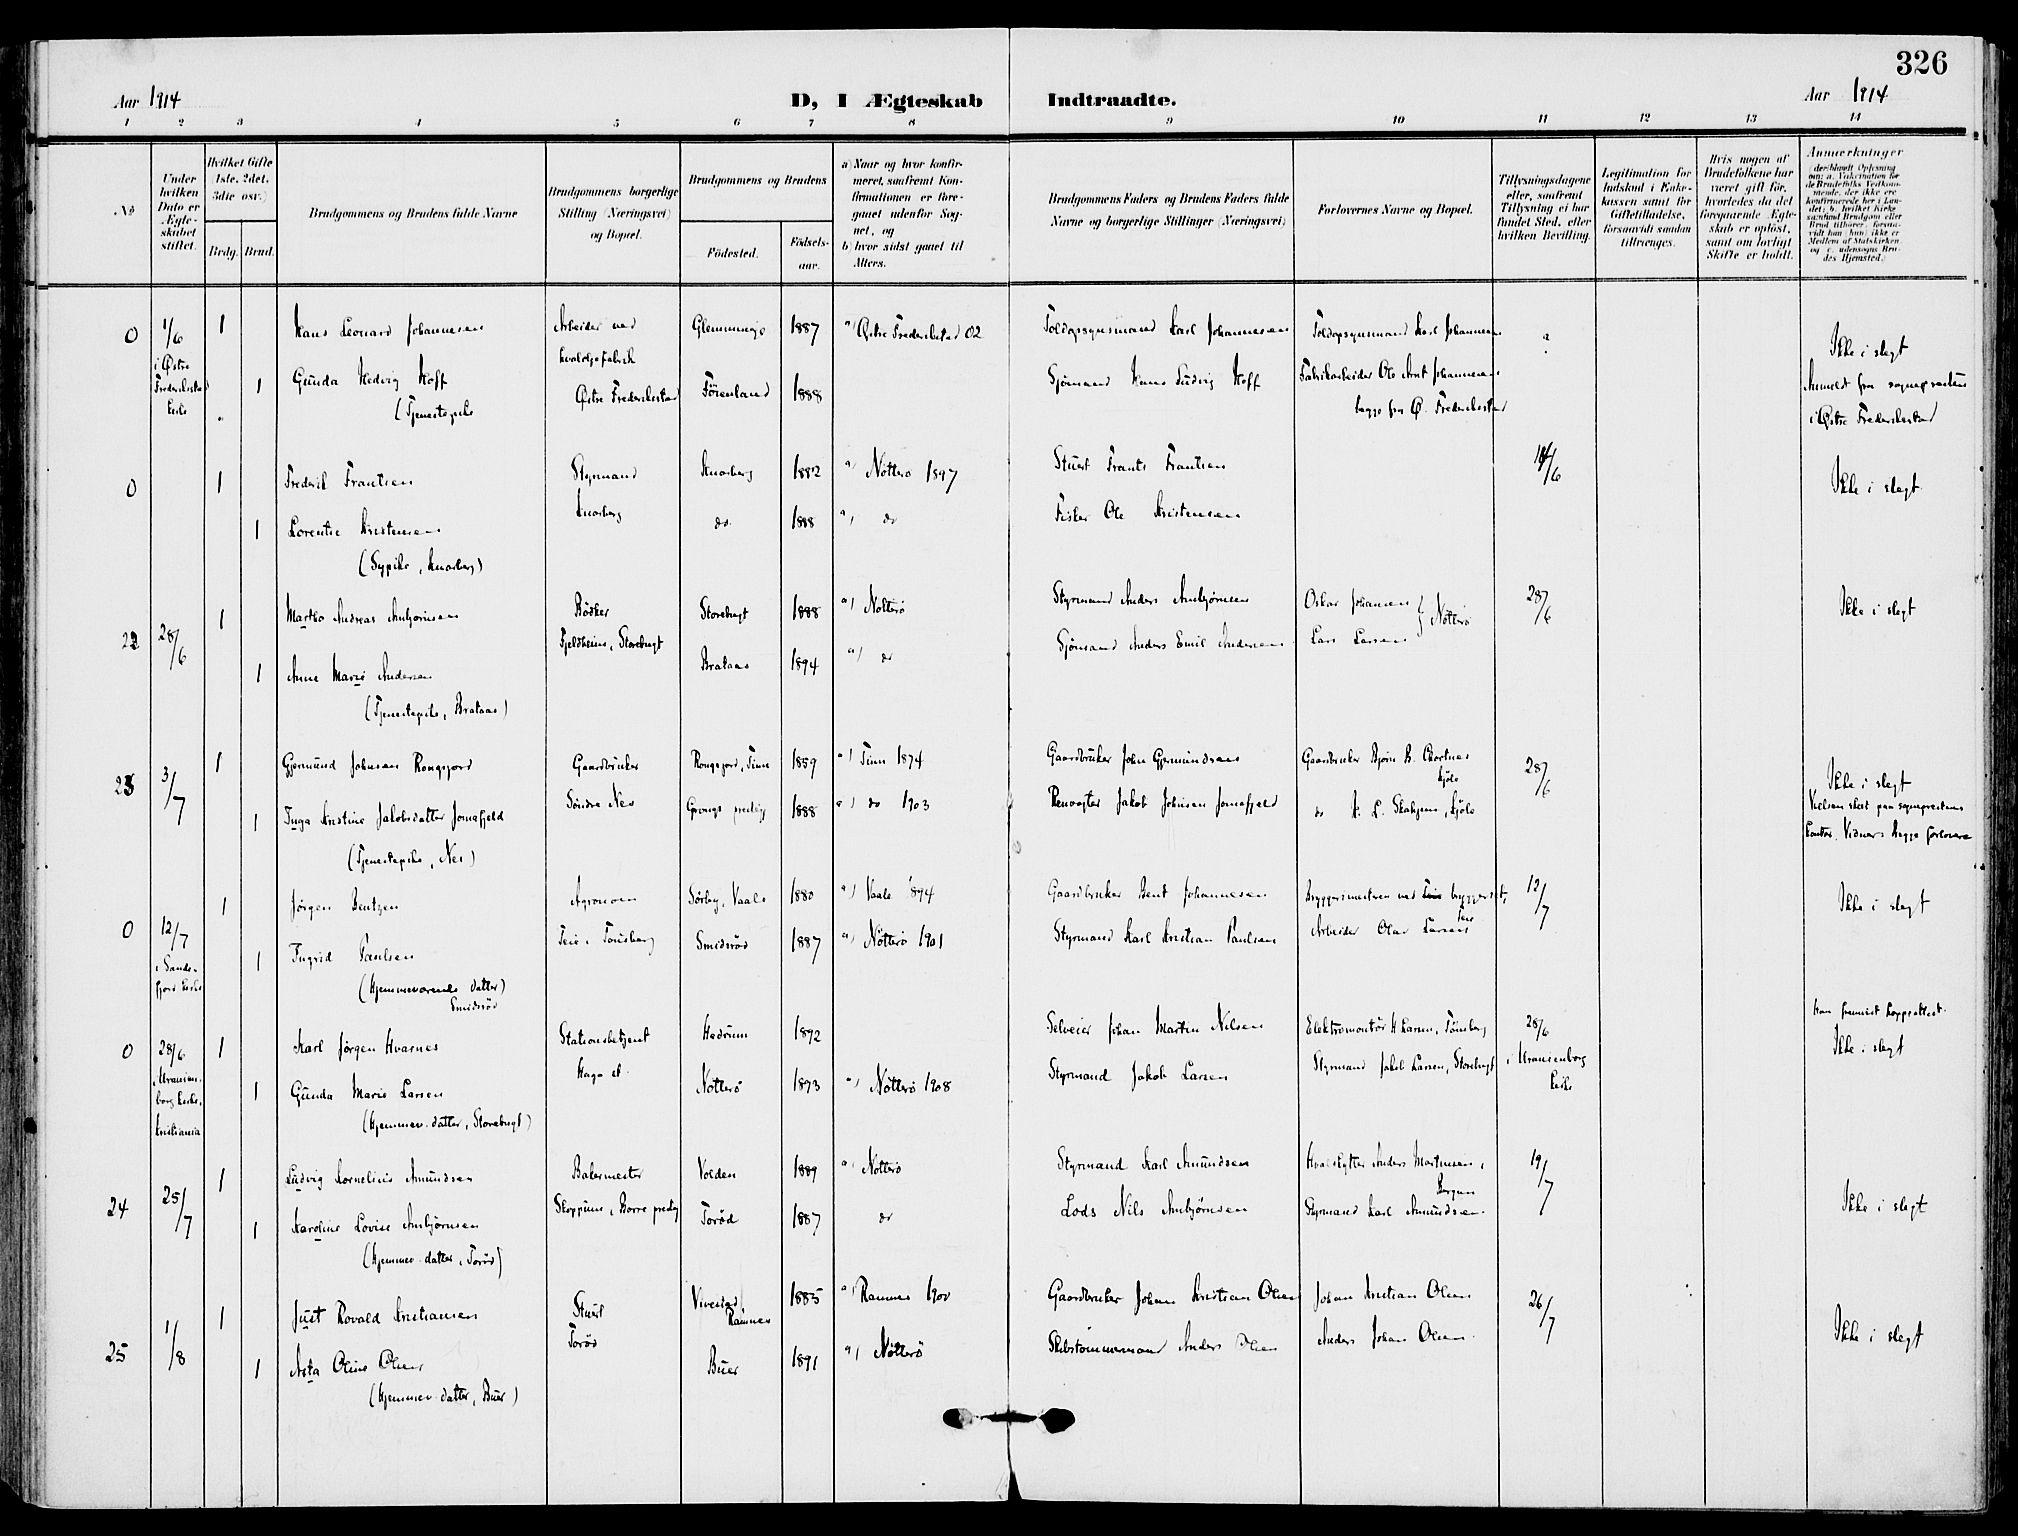 326
Aar 1914
D, I Ægteskab Indtraadte.
Aar 1914
1 2 3 4 5 6 7 8 9 10 11 12 13 14
No
Under hvilken Dato er Ægteskabet stiftet.
Hvilket Gifte (1ste, 2det, 3die osv.)
Brdg. Brud.
Brudgommens og Brudens fulde Navne
Brudgommens borgerlige Stilling (Næringsvei) og Bopæl.
Brudgommens og Brudens
Fødested.
Fødselsaar.
a) Naar og hvor konfirmeret, saafremt Konfirmationen er foregaaet udenfor Sognet, og
b) hvor sidst gaaet til Alters.
Brudgommens Faders og Brudens Faders fulde Navne og borgerlige Stillinger (Næringsvei)
Forlovernes Navne og Bopæl.
Tillysningsdagene eller, saafremt Tillysning ei har fundet Sted, efter hvilken Bevilling.
Legitimation for Indskud i Enkekassen samt for Giftetilladelse, forsaavidt saadan tiltrænges.
Hvis nogen af Brudefolkene har været gift før, hvorledes da det foregaaende Ægteskab er opløst, samt om lovligt Skifte er holdt.
Anmerkninger
0 1/6 1 Hans Leonard Johannesen Arbeider ved Glemminge 1887 a) Østre Frederikstad 02 Toldopsynsmand Karl Johannesen Toldopsynsmand Karl Johannesen Ikke i slegt
i Østre Frederikstad kirke 1 Gunda Hedvig Hoff Østre Frederikstad 1888 Sjømand Hans Ludvig Hoff Fabrikarbeider Ole Arnt Johannesen Anmeldt fra sognepresten
(Tjenestepike begge fra Ø. Frederikstad i Østre Frederikstad
0 1 Frederik Frantsen Styrmand Knarberg 1882 a) Nøtterø 1897 Stuert Frants Frantsen 14/6 Ikke i slegt
1 Lorentse Kristensen Knarberg do 1888 a) do Fisker Ole Kristensen
(Sypike, Knarberg)
22 28/6 1 Andreas Anbjørnsen Bødker Storebugt 1888 a) Nøtterø Styrmand Anders Anbjørnsen Oskar Johansen 28/6 Ikke i slegt
Fjeldheim, Storebugt Lars Larsen } Nøtterø
1 Anne Marie Andersen Brataas 1894 a) do Sjømand Anders Emil Andersen
(Tjenestepike, Brataas)
23 3/7 1 Gjermund Johnsen Rongsjord Gaardbruker Rongsjord, Tinn 1859 a) Tinn 1874 Gaardbruker John Gjermundsen Gaardbruker Bjørn B. 28/6 Ikke i slegt
1 Inga Kristine Jakobsdatter Jomafjeld Søndre Nes 1888 a) do 1903 Jakob Johnsen Jomafjeld do Vielsen sket paa sogneprestens
(Tjenestepike, Nes) kontor. Vidner: begge forlovere
0 12/7 1 Jørgen Bentzen Agronom Sørby, Vaale 1880 a) Vaale 1894 Gaardbruker Bent Johannesen 12/7 Ikke i slegt
i Sandefjord kirke 1 Ingrid Paulsen Teie, Tønsberg Smidsrød 1887 a) Nøtterø 1901 Styrmand Karl Kristian Paulsen Arbeider Olav Larsen
(Hjemmeværende datter)
Smidsrød
0 28/6 1 Karl Jørgen Hvarnes Stationsbetjent Hedrum 1892 Selveier Johan Martin Nilsen Elektromontør H. Larsen, Tønsberg 28/6 Ikke i slegt
i Uranienborg kirke, Kristiania 1 Gunda Marie Larsen Nøtterø 1893 a) Nøtterø 1908 Styrmand Jakob Larsen Styrmand Jakob Larsen, Storebugt i Uranienborg kirke
(Hjemmev. datter, Storebugt)
24 25/7 1 Ludvig Kornelius Amundsen Bakermester Volden 1889 a) Nøtterø Styrmand Karl Amundsen Hvalskytter Anders Martinsen, Bergan 19/7 Ikke i slegt
1 Karoline Lovise Anbjørnsen Skoppum, Borre prestegj Torød 1887 do Lods Nils Anbjørnsen Styrmand Karl Amundsen
(Hjemmev. datter, Torød)
25 1/8 1 Just Rovald Kristiansen Stuert Vivestad, Ramnes 1885 a) Ramnes 1900 Gaardbruker Johan Kristian Olsen Johan Kristian Olsen 26/7 Ikke i slegt
1 Asta Oline Olsen Torød Buer 1891 a) Nøtterø Skibstømmermand Anders Olsen Anders Johan Olsen
(Hjemmev. datter, Buer)